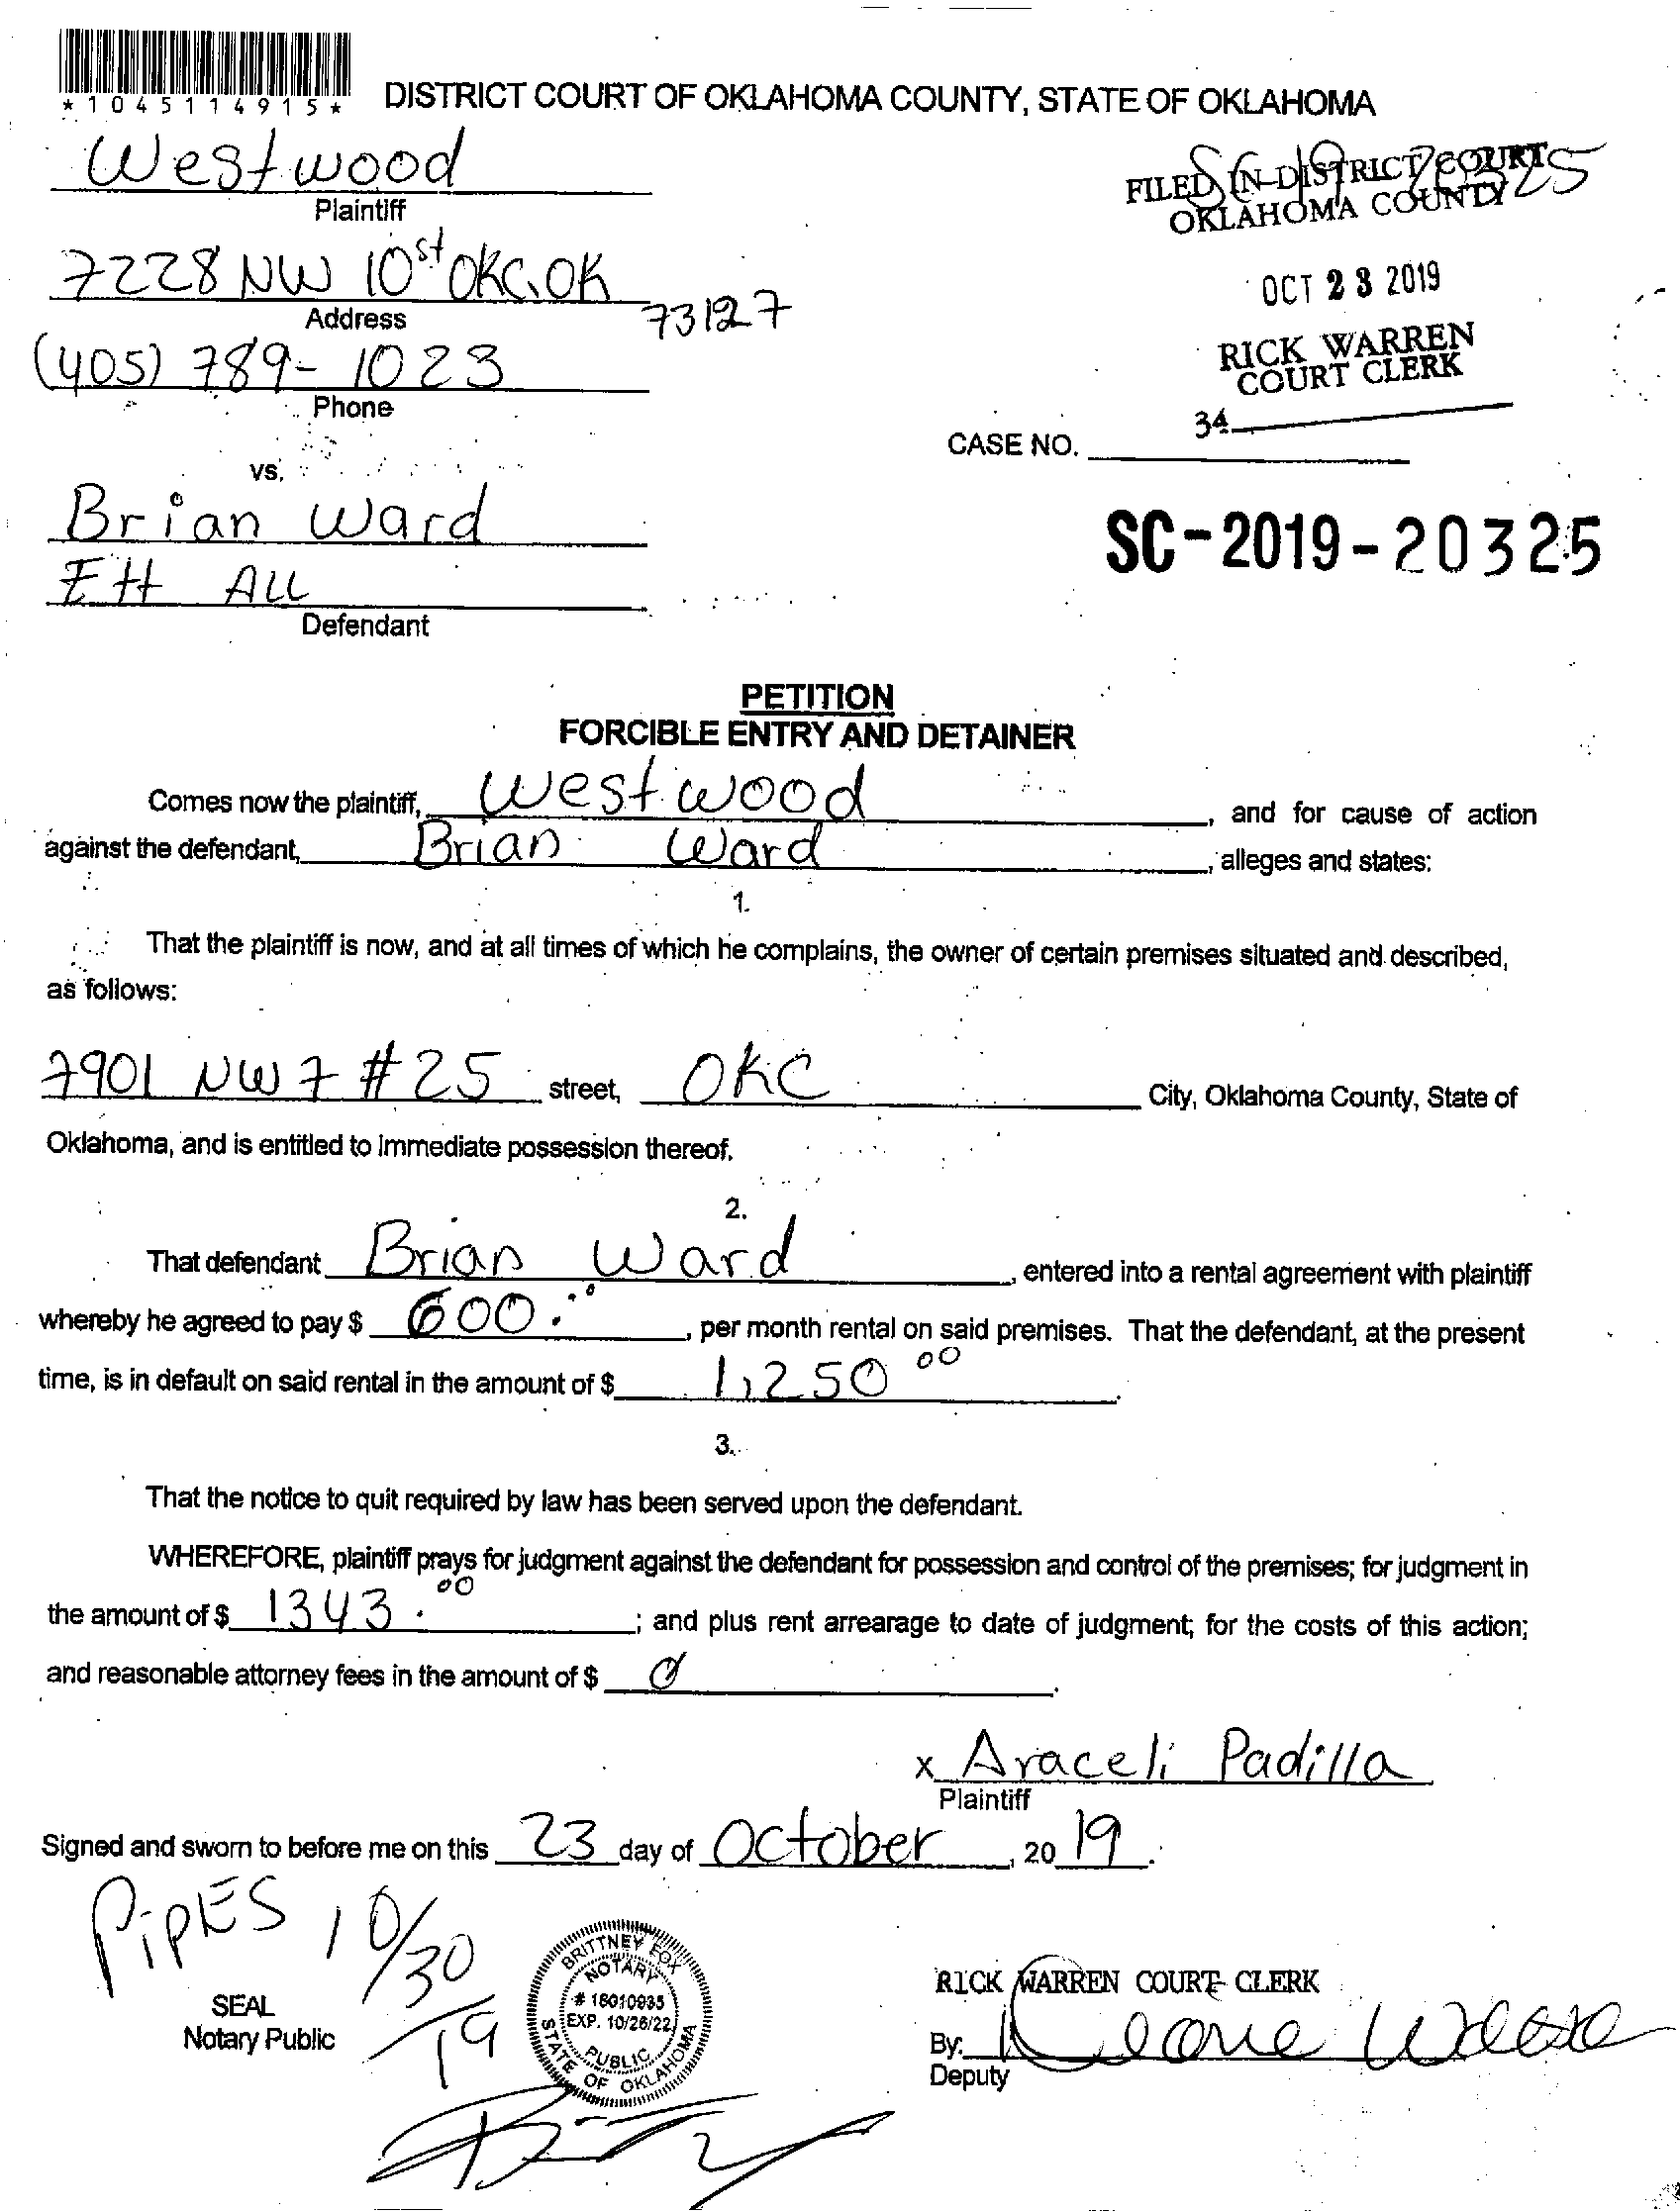 *1045114915*
DISTRICT COURT OF OKLAHOMA COUNTY, STATE OF OKLAHOMA
Westwood
Plaintiff
SC-19-20325
FILED IN DISTRICT COURT
OKLAHOMA COUNTY
7228 NW 10st OKC, OK
Address
73127
OCT 23 2019
(405) 789-1023
Phone
RICK WARREN
COURT CLERK
34
CASE NO.
vs.
Brian Ward
Ett ALL
Defendant
SC-2019-20325
PETITION
FORCIBLE ENTRY AND DETAINER
Comes now the plaintiff, Westwood, and for cause of action
against the defendant, Brian Ward, alleges and states:
1.
That the plaintiff is now, and at all times of which he complains, the owner of certain premises situated and described,
as follows:
7901 NW 7 #25 street, OKC City, Oklahoma County, State of
Oklahoma, and is entitled to immediate possession thereof.
2.
That defendant Brian Ward, entered into a rental agreement with plaintiff
whereby he agreed to pay $ 600.00, per month rental on said premises. That the defendant, at the present
time, is in default on said rental in the amount of $ 1,250 00.
3.
That the notice to quit required by law has been served upon the defendant.
WHEREFORE, plaintiff prays for judgment against the defendant for possession and control of the premises; for judgment in
the amount of $ 1343.00; and plus rent arrearage to date of judgment; for the costs of this action;
and reasonable attorney fees in the amount of $ 0.
x Araceli Padilla
Plaintiff
Signed and sworn to before me on this 23 day of October, 2019.
PipES 10/30/19
SEAL
Notary Public
BRITTNEY FOX
NOTARY
# 18010935
EXP. 10/26/22
PUBLIC
STATE OF OKLAHOMA
RICK WARREN COURT CLERK
By:
Deputy